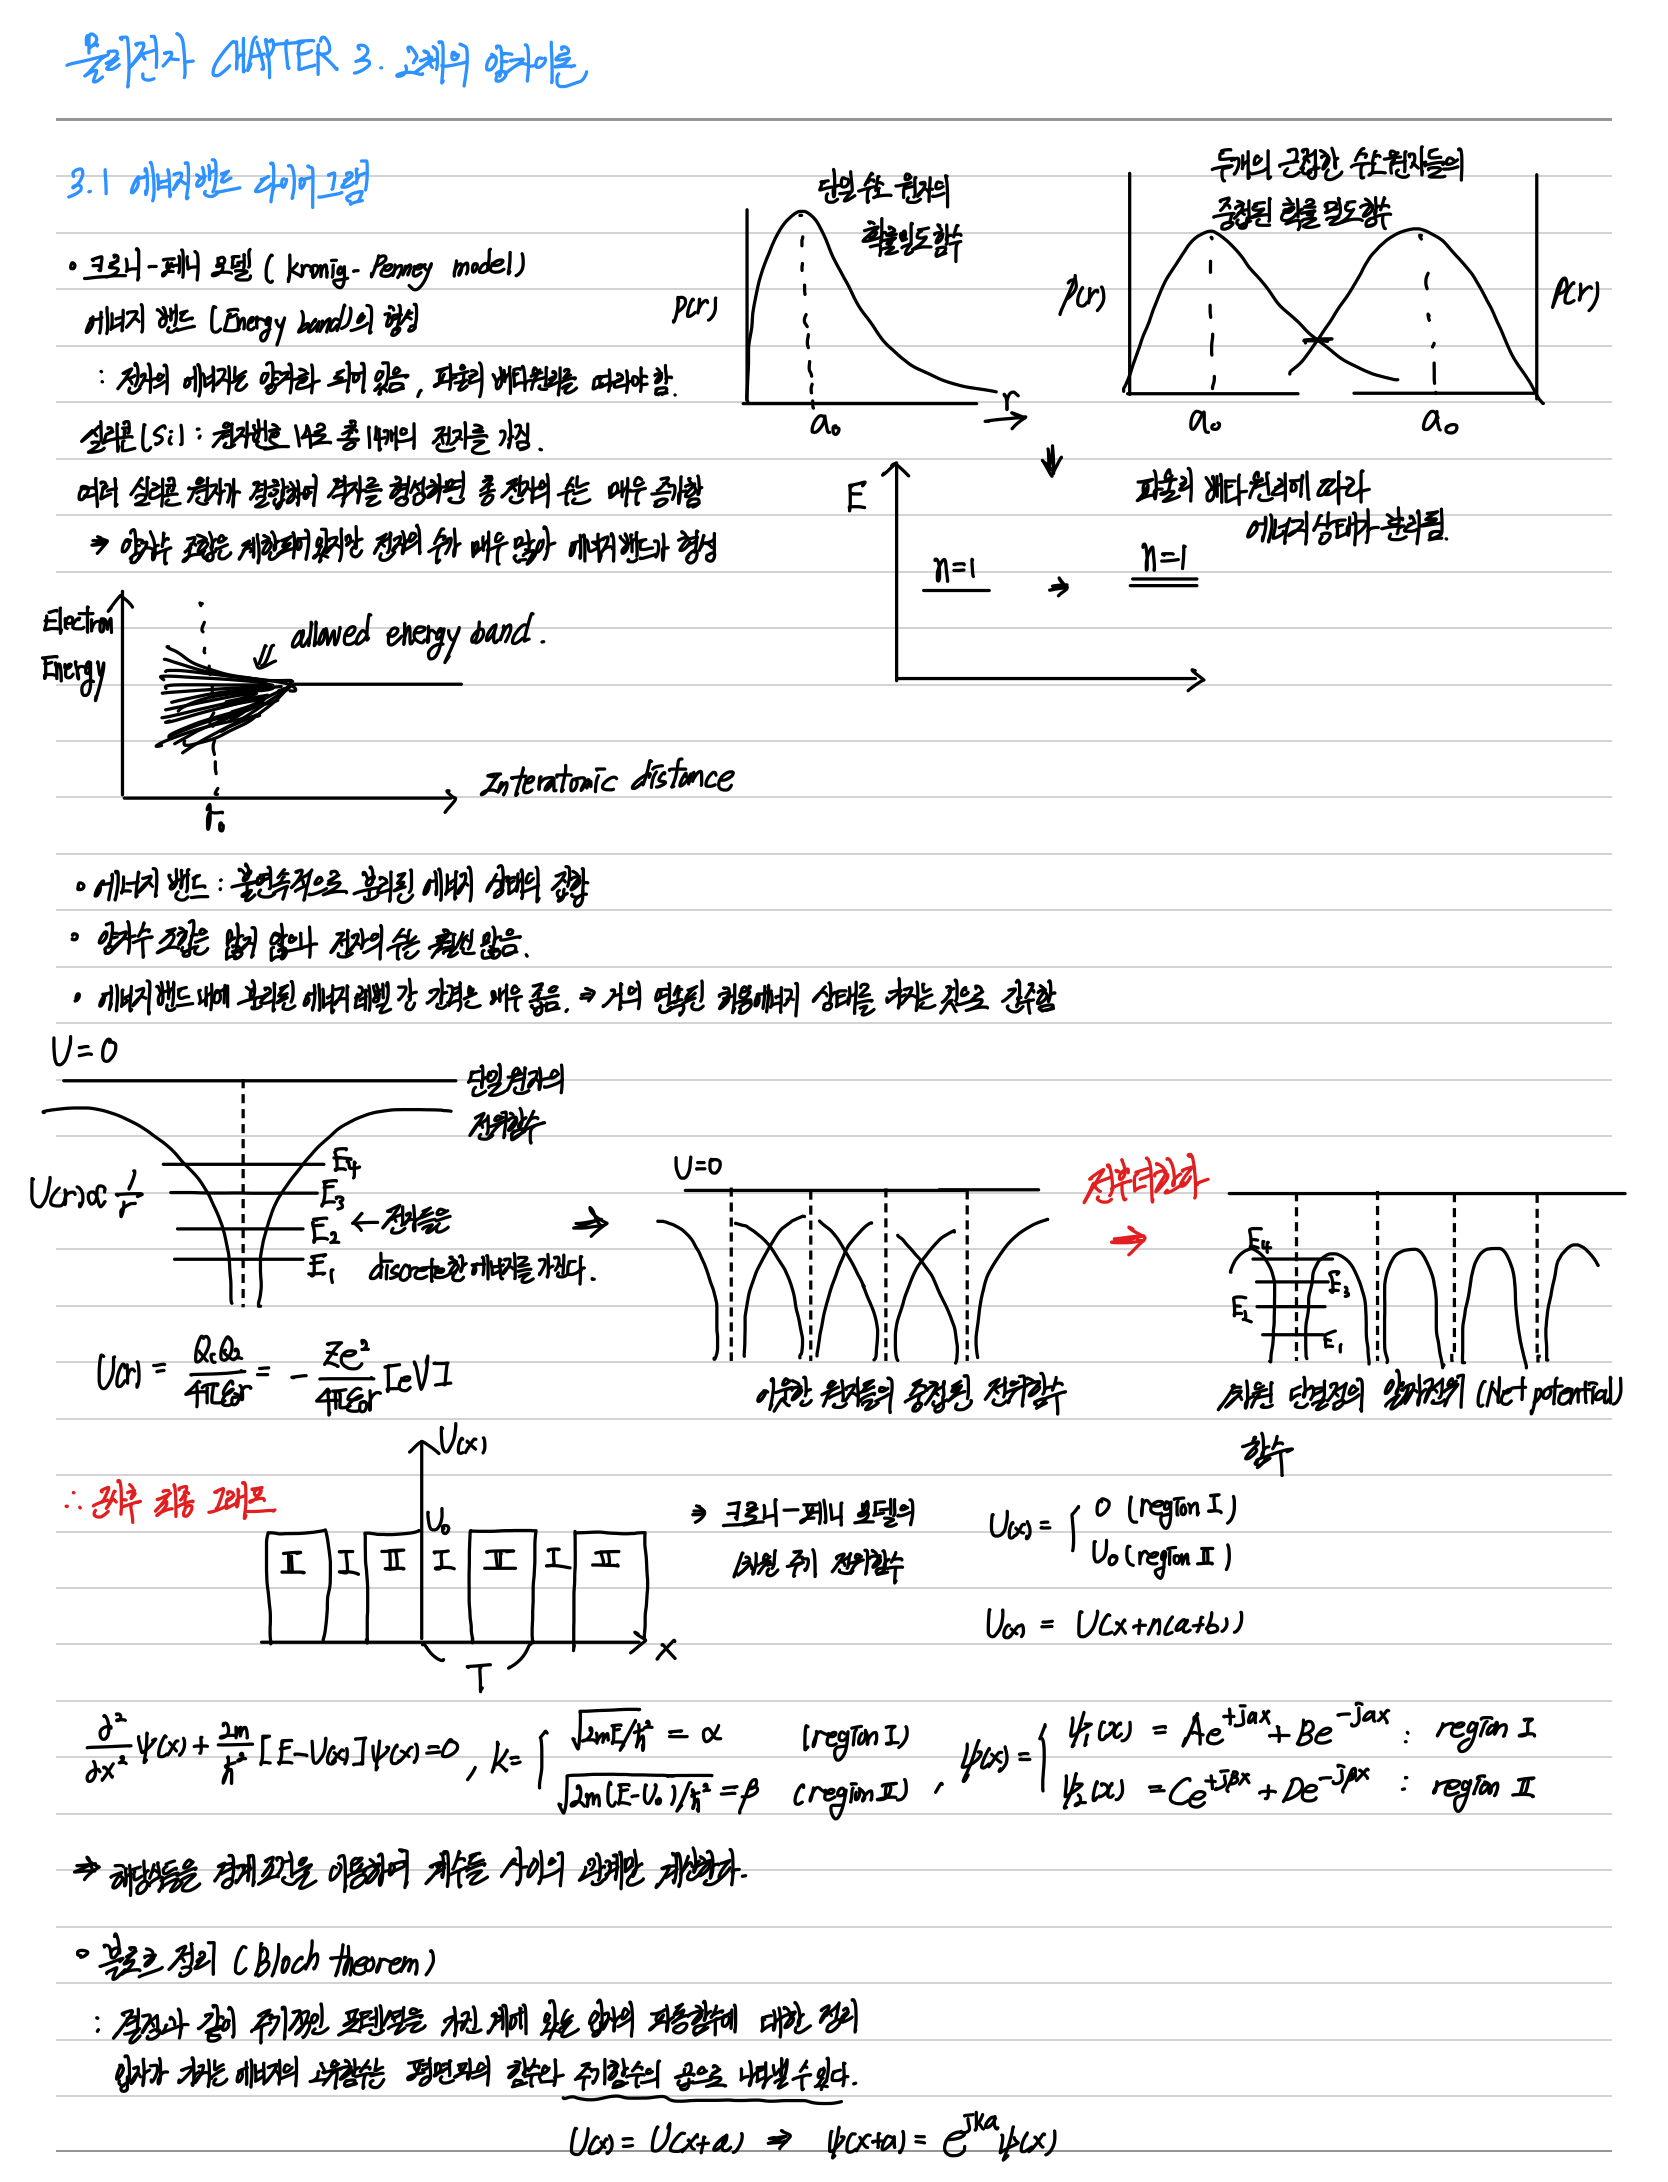 물리전자 CHAPTER 3. 고체의 양자이론
3.1 에너지밴드 다이어그램
• 크로니-페니 모델 ( kronig-Penney model)
에너지 밴드 (Energy band)의 형성
: 전자의 에너지는 양자화 되어 있음, 파울리 배타원리를 따라야 함.
실리콘(Si) : 원자번호 14로 총 14개의 전자를 가짐.
여러 실리콘 원자가 결합하여 격자를 형성하면 총 전자의 수는 매우 증가함
⇒ 양자수 조합은 제한되어있지만 전자의 수가 매우 많아 에너지밴드가 형성
단일 수소 원자의
확률밀도함수
P(r)
a₀
r
두개의 근접한 수소원자들의
중첩된 확률 밀도함수
P(r)
P(r)
a₀
a₀
E
파울리 배타원리에 따라
에너지상태가 분리됨.
n=1
⇒
n=1
Electron
Energy
allowed energy band.
Interatomic distance
r₀
• 에너지 밴드 : 불연속적으로 분리된 에너지 상태의 집합
• 양자수 조합은 많지 않으나 전자의 수는 훨씬 많음.
• 에너지밴드 내에 분리된 에너지레벨 간 간격은 매우 좁음. ⇒ 거의 연속된 허용에너지 상태를 가지는 것으로 간주함
U=0
단일원자의
전위함수
U(r)∝ 1/r
E₄
E₃
E₂ ← 전자들은
E₁ discrete한 에너지를 가진다.
U(r) = Q₁Q₂/4πε₀r = - Ze²/4πε₀r [eV]
U=0
이웃한 원자들의 중첩된 전위함수
전부더한다
E₄
E₃
E₂
E₁
1차원 단결정의 알짜전위 (Net potential)
함수
∴ 근사후 최종 그래프
U(x)
U₀
II I II I II I II
x
T
⇒ 크로니-페니 모델의
1차원 주기 전위함수
U(x) = { 0 (region I)
U₀ (region II)
U(x) = U(x+n(a+b))
∂²/∂x² ψ(x) + 2m/ħ² [E-U(x)]ψ(x)=0 , K= { √2mE/ħ² = α (region I)
√2m(E-U₀)/ħ² = β (region II) ,
ψ(x)= { ψ₁(x) = Ae^+jαx + Be^-jαx : region I
ψ₂(x) = Ce^+jβx + De^-jβx : region II
⇒ 해당식들을 경계조건을 이용하여 계수들 사이의 관계만 계산한다.
• 블로흐 정리 (Bloch theorem)
: 결정과 같이 주기적인 포텐셜을 가진 계에 있는 입자의 파동함수에 대한 정리
입자가 가지는 에너지의 고유함수는 평면파의 함수와 주기함수의 곱으로 나타낼 수 있다.
U(x) = U(x+a) ⇒ ψ(x+a) = e^jka ψ(x)